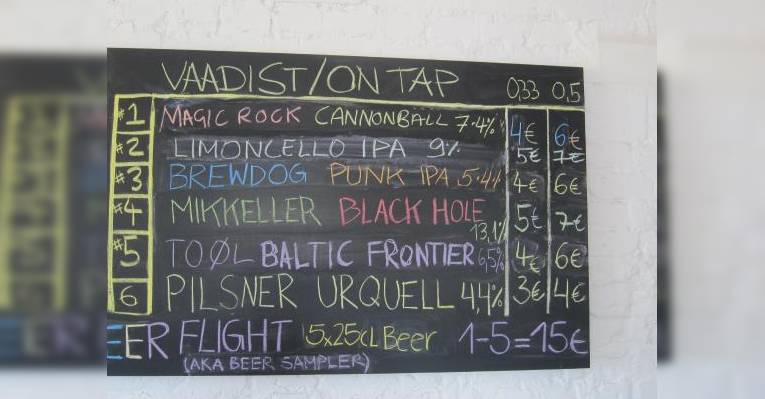 VAADIST/ON TAP 0,33 0,5
#1 MAGIC ROCK CANNONBALL 7.4% 4€ 6€
#2 LIMONCELLO IPA 9% 5€ 7€
#3 BREWDOG PUNK IPA 5.4% 4€ 6€
#4 MIKKELLER BLACK HOLE 13,1% 5€ 7€
#5 TOØL BALTIC FRONTIER 6,5% 4€ 6€
6 PILSNER URQUELL 4,4% 3€ 4€
EER FLIGHT 5x25CL Beer 1-5=15€
(AKA BEER SAMPLER)